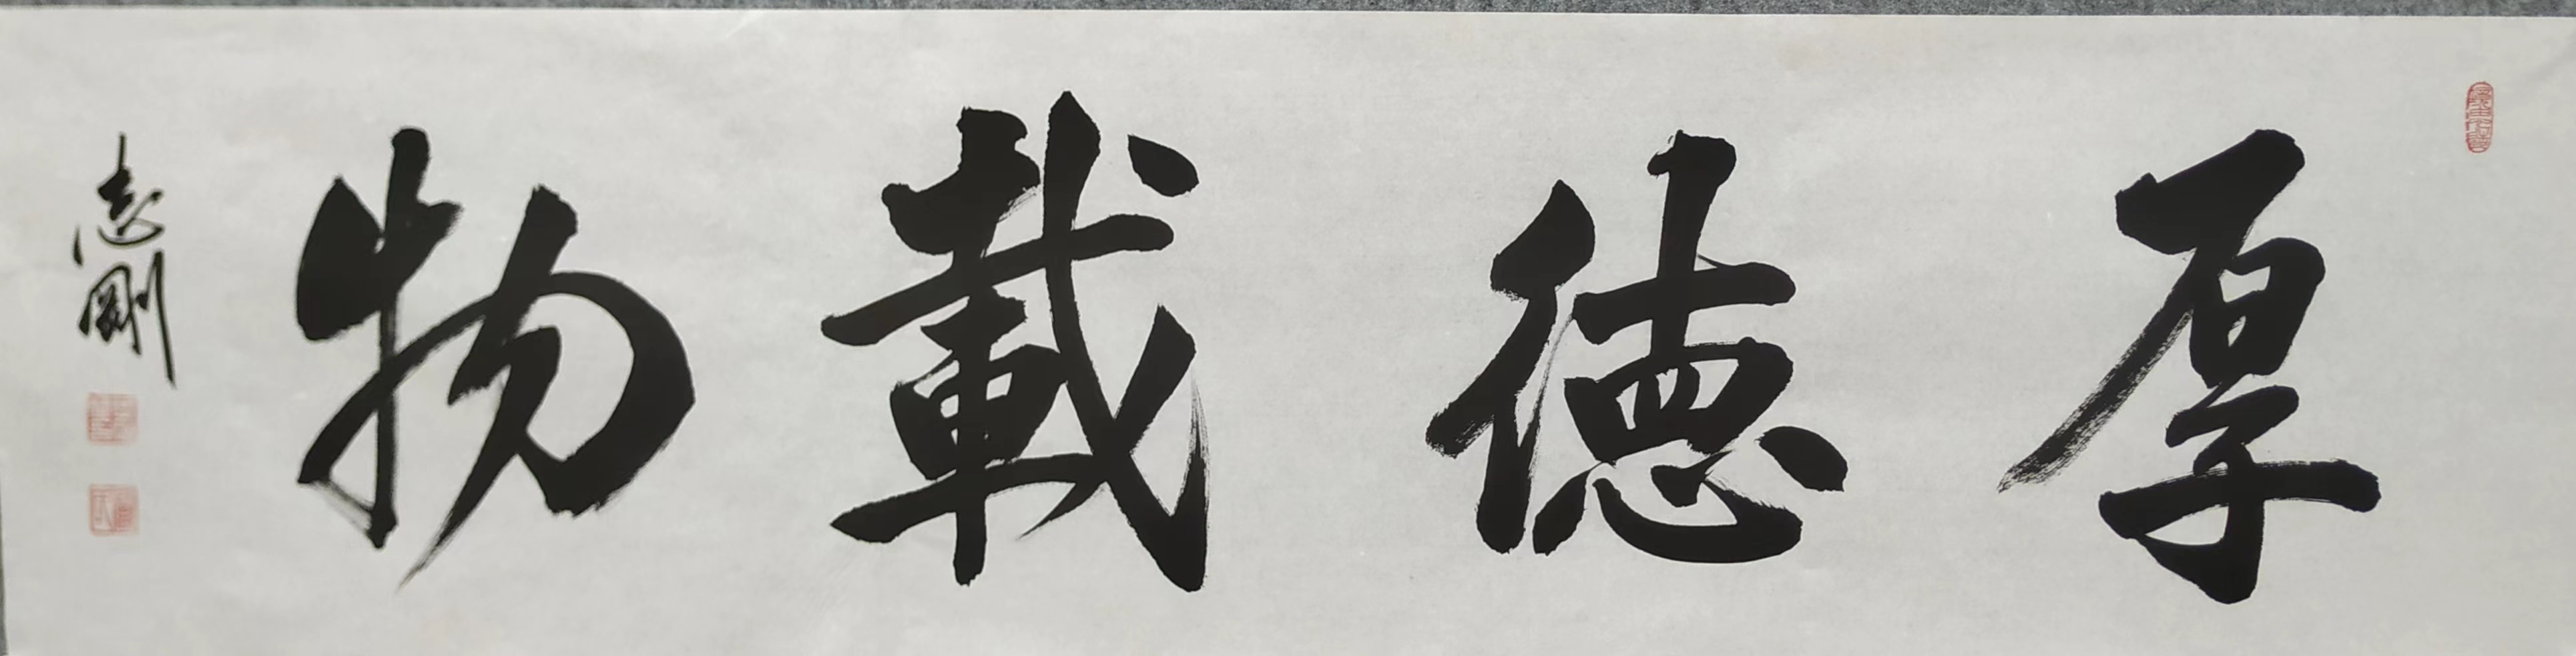 厚德載物
志剛